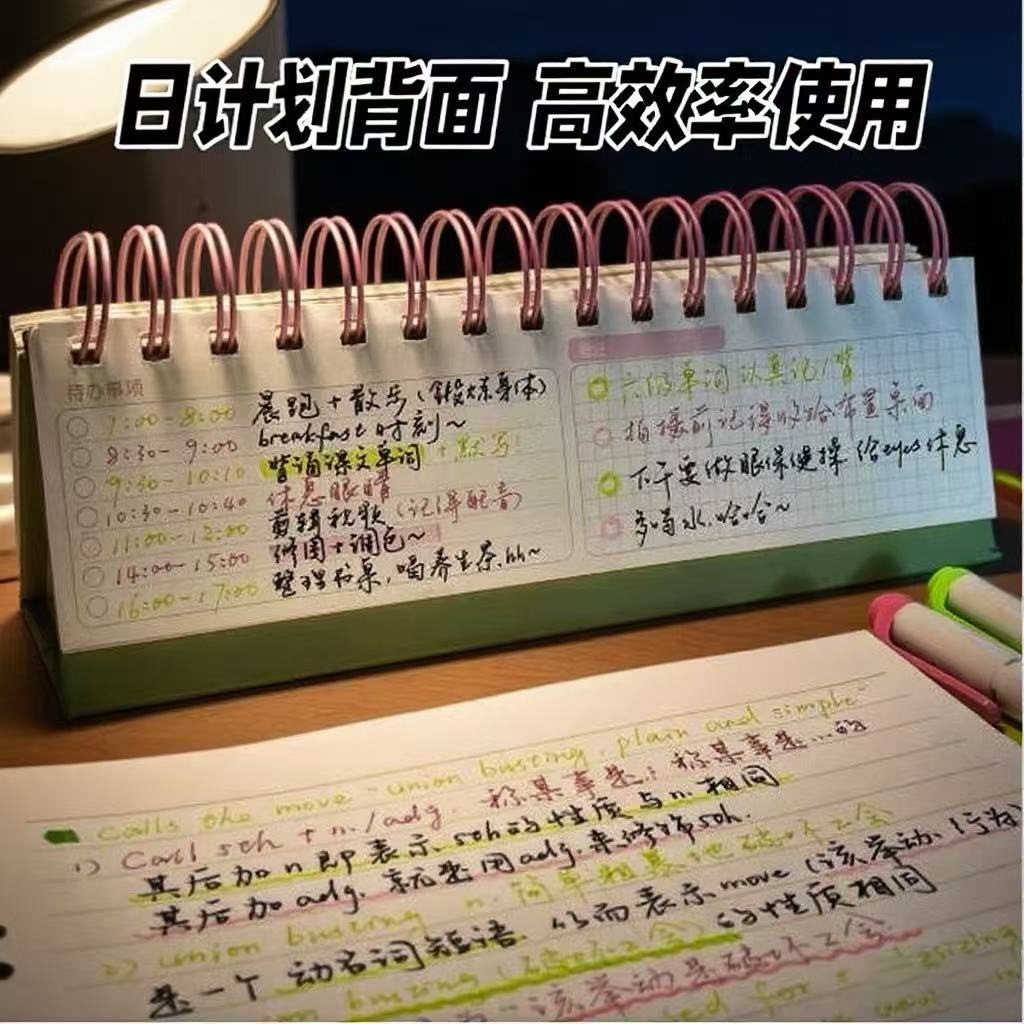 日计划背面 高效率使用
待办事项
7:00-8:00 晨跑+散步(锻炼身体)
8:30-9:00 breakfast时刻~
9:30-10:10 背诵课文单词+默写
10:30-10:40 休息眼睛
11:00-12:00 剪辑视频(记得配音)
14:00-15:00 修图+调色~
16:00-17:00 整理书桌,喝养生茶.hh~
六级单词认真记/背
拍摄前记得收拾布置桌面
下午要做眼保健操 给eyes休息
多喝水.哈哈~
calls the move "union busting, plain and simple"
1) Call sth + n./adj. 称某事是; 称某事是...的
其后加n即表示sth的性质与n.相同
其后加adj.就是用adj.来修饰sth.
2) union busting n. 简单粗暴地破坏工会
是一个动名词短语. 从而表示move(该举动.行为
busting(破坏工会)的性质相同
该举动是破坏工会.